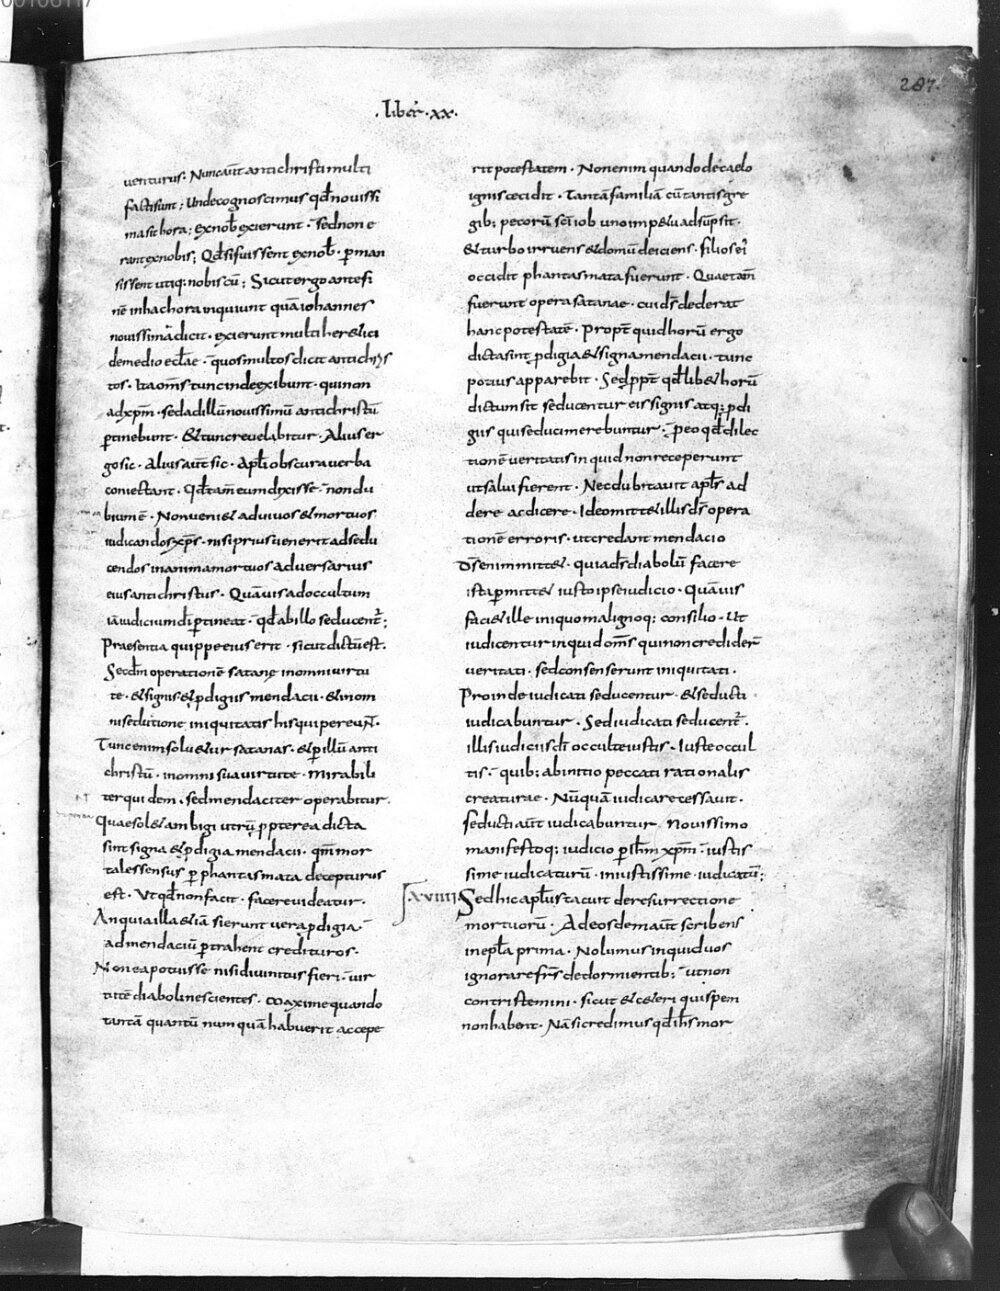 287.
·Liber·xx·
uenturus; Nunc aut̄ antichristi multi
facti sunt; Unde cognoscimus qd̄ nouissi
ma sit hora; ex nob̄ exierunt· sed non e
rant ex nobis; Qd̄ si fuissent ex nob̄· ꝑman
sissent utiq; nobiscū; Sicut ergo ante fi
nē in hac hora inquiunt quā iohannes
nouissimā dicit· exierunt multi heretici
de medio eccłae· quos multos dicit antichris
tos· Ita om̄s tunc inde exibunt· qui non
ad xp̄m· sed ad illū nouissimū antichristū
ꝑtinebunt· & tunc reuelabitur· Alius er
go sic· alius aut̄ sic· apłi obscura uerba
coniectant· Qd̄ tam̄ eum dixisse· non du
bium ē· Non ueni& ad uiuos & mortuos
iudicandos xp̄s· nisi prius uenerit ad sedu
cendos in anima mortuos aduersarius
eius antichristus· Quāuis ad occultum
iā iudicium dī ꝑtineat· qd̄ ab illo seducent̄;
Praesentia quippe eius erit· sicut dictū est·
Secdm̄ operationē satanę in omni uirtu
te· & signis & ꝓdigiis mendacii· & in om
ni seductione iniquitatis his qui pereunt̄·
Tunc enim solu&ur satanas· & ꝑ illū anti
christū· in omni sua uirtute· mirabili
ter quidem· sed mendaciter operabitur·
Quae sol& ambigi utrū ꝓpterea dicta
sint signa & ꝓdigia mendacii· qm̄ mor
tales sensus ꝑ phantasmata decepturus
est· Ut qd̄ non facit· facere uideatur·
An quia illa &iā si erunt uera ꝓdigia·
ad mendaciū ꝑtrahent credituros·
Non ea potuisse nisi diuinitus fieri· uir
tutē diaboli nescientes· maxime quando
tantā quantū numquā habuerit accepe
rit potestatem· Non enim quando de caelo
ignis cecidit· & tantā familiā cū tantis gre
gib; pecorū sc̄i iob uno imp&u adsūpsit·
& turbo irruens & domū deiciens· filios ei
occidit phantasmata fuerunt· Quae tam̄
fuerunt opera satanae· cui ds̄ dederat
hanc potestatē· Propt̄ quid horū ergo
dicta sint ꝓdigia & signa mendacii· tunc
potius apparebit· Sed ꝓpt̄ qd̄ lib& horū
dictum sit seducentur eis signis atq; ꝓdi
giis qui seduci merebuntur· ꝑ eo qd̄ dilec
tionē ueritatis inquid non receperunt
ut salui fierent· Nec dubitauit apłs ad
dere ac dicere· Ideo mitt& illis ds̄ opera
tionē erroris· ut credant mendacio
Ds̄ enim mitt&· quia ds̄ diabolū facere
ista ꝑmitt& iusto ipse iudicio· Quāuis
faci& ille iniquo malignoq; consilio· Ut
iudicentur inquid om̄s qui non crediderꝫ
ueritati· sed consenserunt iniquitati·
Proinde iudicati seducentur· & seducti
iudicabuntur· Sed iudicati seducent̄·
illis iudiciis dī occulte iustis· Iuste occul
tis· quib; ab initio peccati rationalis
creaturae· Nūquā iudicare cessauit·
seducti aut̄ iudicabuntur nouissimo
manifestoq; iudicio ꝑ ih̄m xp̄m· iustis
sime iudicaturū· iniustissime iudicatū;
xviiii Sed hic apłus tacuit de resurrectione
mortuorū· Ad eosdem aut̄ scribens
in epł̄a prima· Nolumus inquid uos
ignorare frs̄ de dormientib; ut non
contristemini· sicut & ceteri qui spem
non habent· Nā si credimus qd̄ ih̄s mor